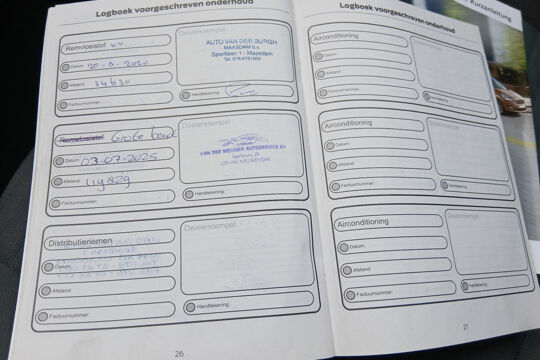 Logboek voorgeschreven onderhoud
Remvloeistof vv
Datum: 20-8-2020
Afstand: 74630
Factuurnummer:
Dealerstempel
AUTO VAN DER BURGH
MAASDAM b.v.
Sportlaan 1 - Maasdam
Tel. 078-6761000
Handtekening:
Remvloeistof Grote beurt
Datum: 03-07-2025
Afstand: 119829
Factuurnummer:
Dealerstempel
VAN DER MEIJDEN AUTOSERVICE BV
Handtekening:
Distributieriemen
Datum:
Afstand:
Factuurnummer:
Dealerstempel
Handtekening:
26
Logboek voorgeschreven onderhoud
Airconditioning
Datum:
Afstand:
Factuurnummer:
Dealerstempel
Handtekening:
Airconditioning
Datum:
Afstand:
Factuurnummer:
Dealerstempel
Handtekening:
Airconditioning
Datum:
Afstand:
Factuurnummer:
Dealerstempel
Handtekening:
27
Kurzanleitung